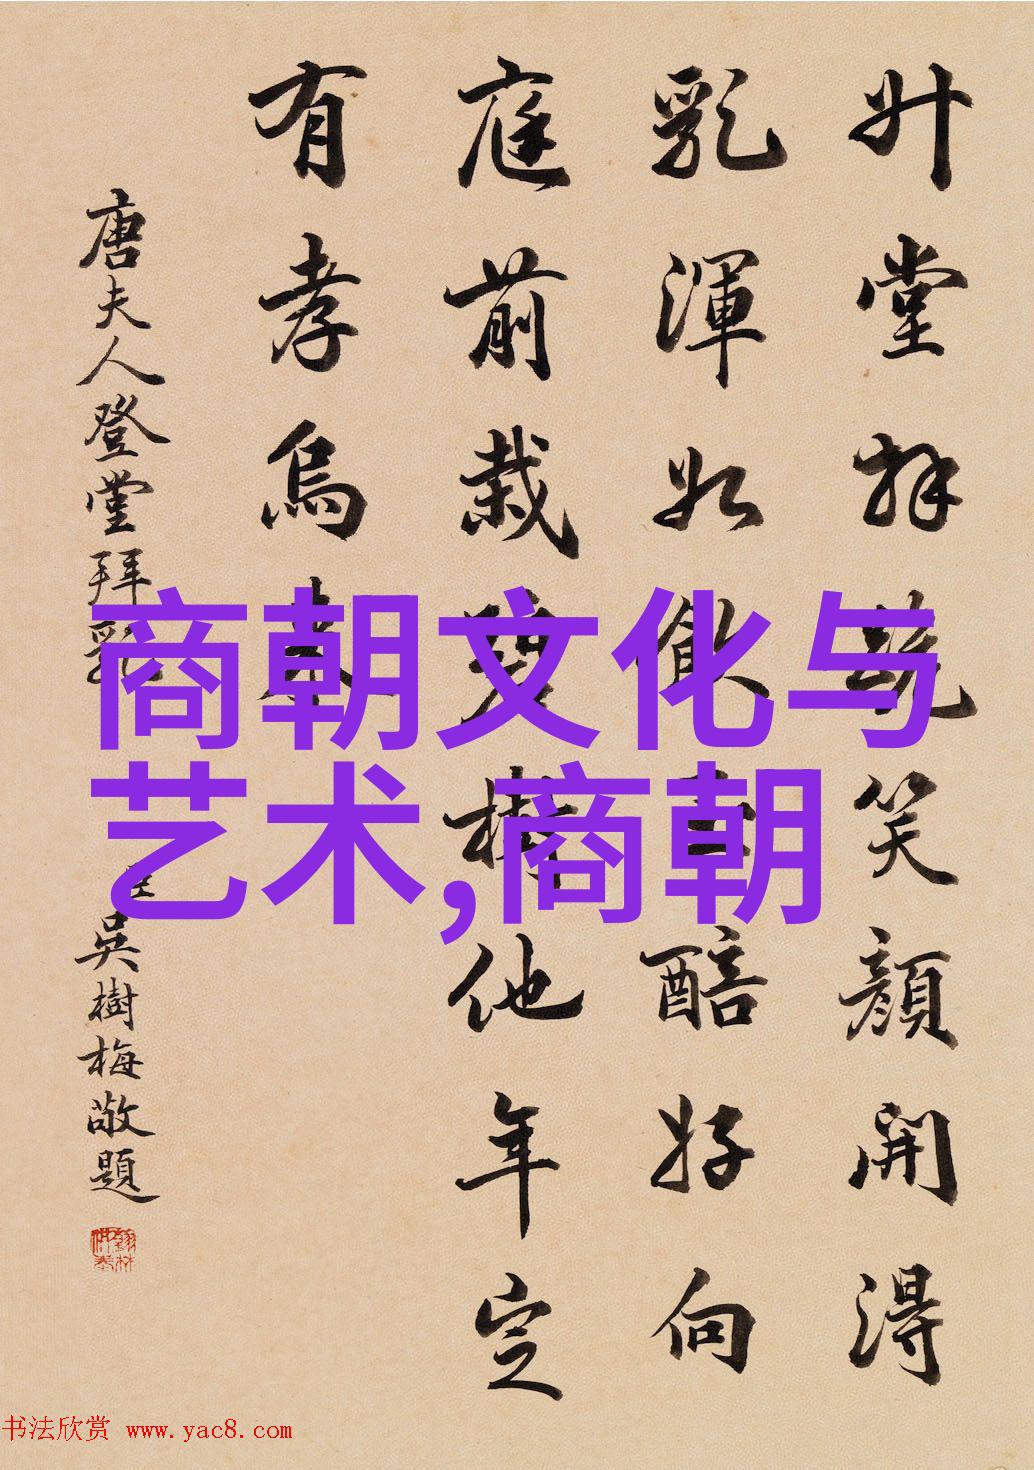 升堂拜笑顏開得
乳渾如飲玉醅好向
庭前栽樹他年定
有孝烏來
唐夫人登堂拜乳
臣吳樹梅敬題
商朝文化与
艺术,商朝
书法欣赏 www.yac8.com